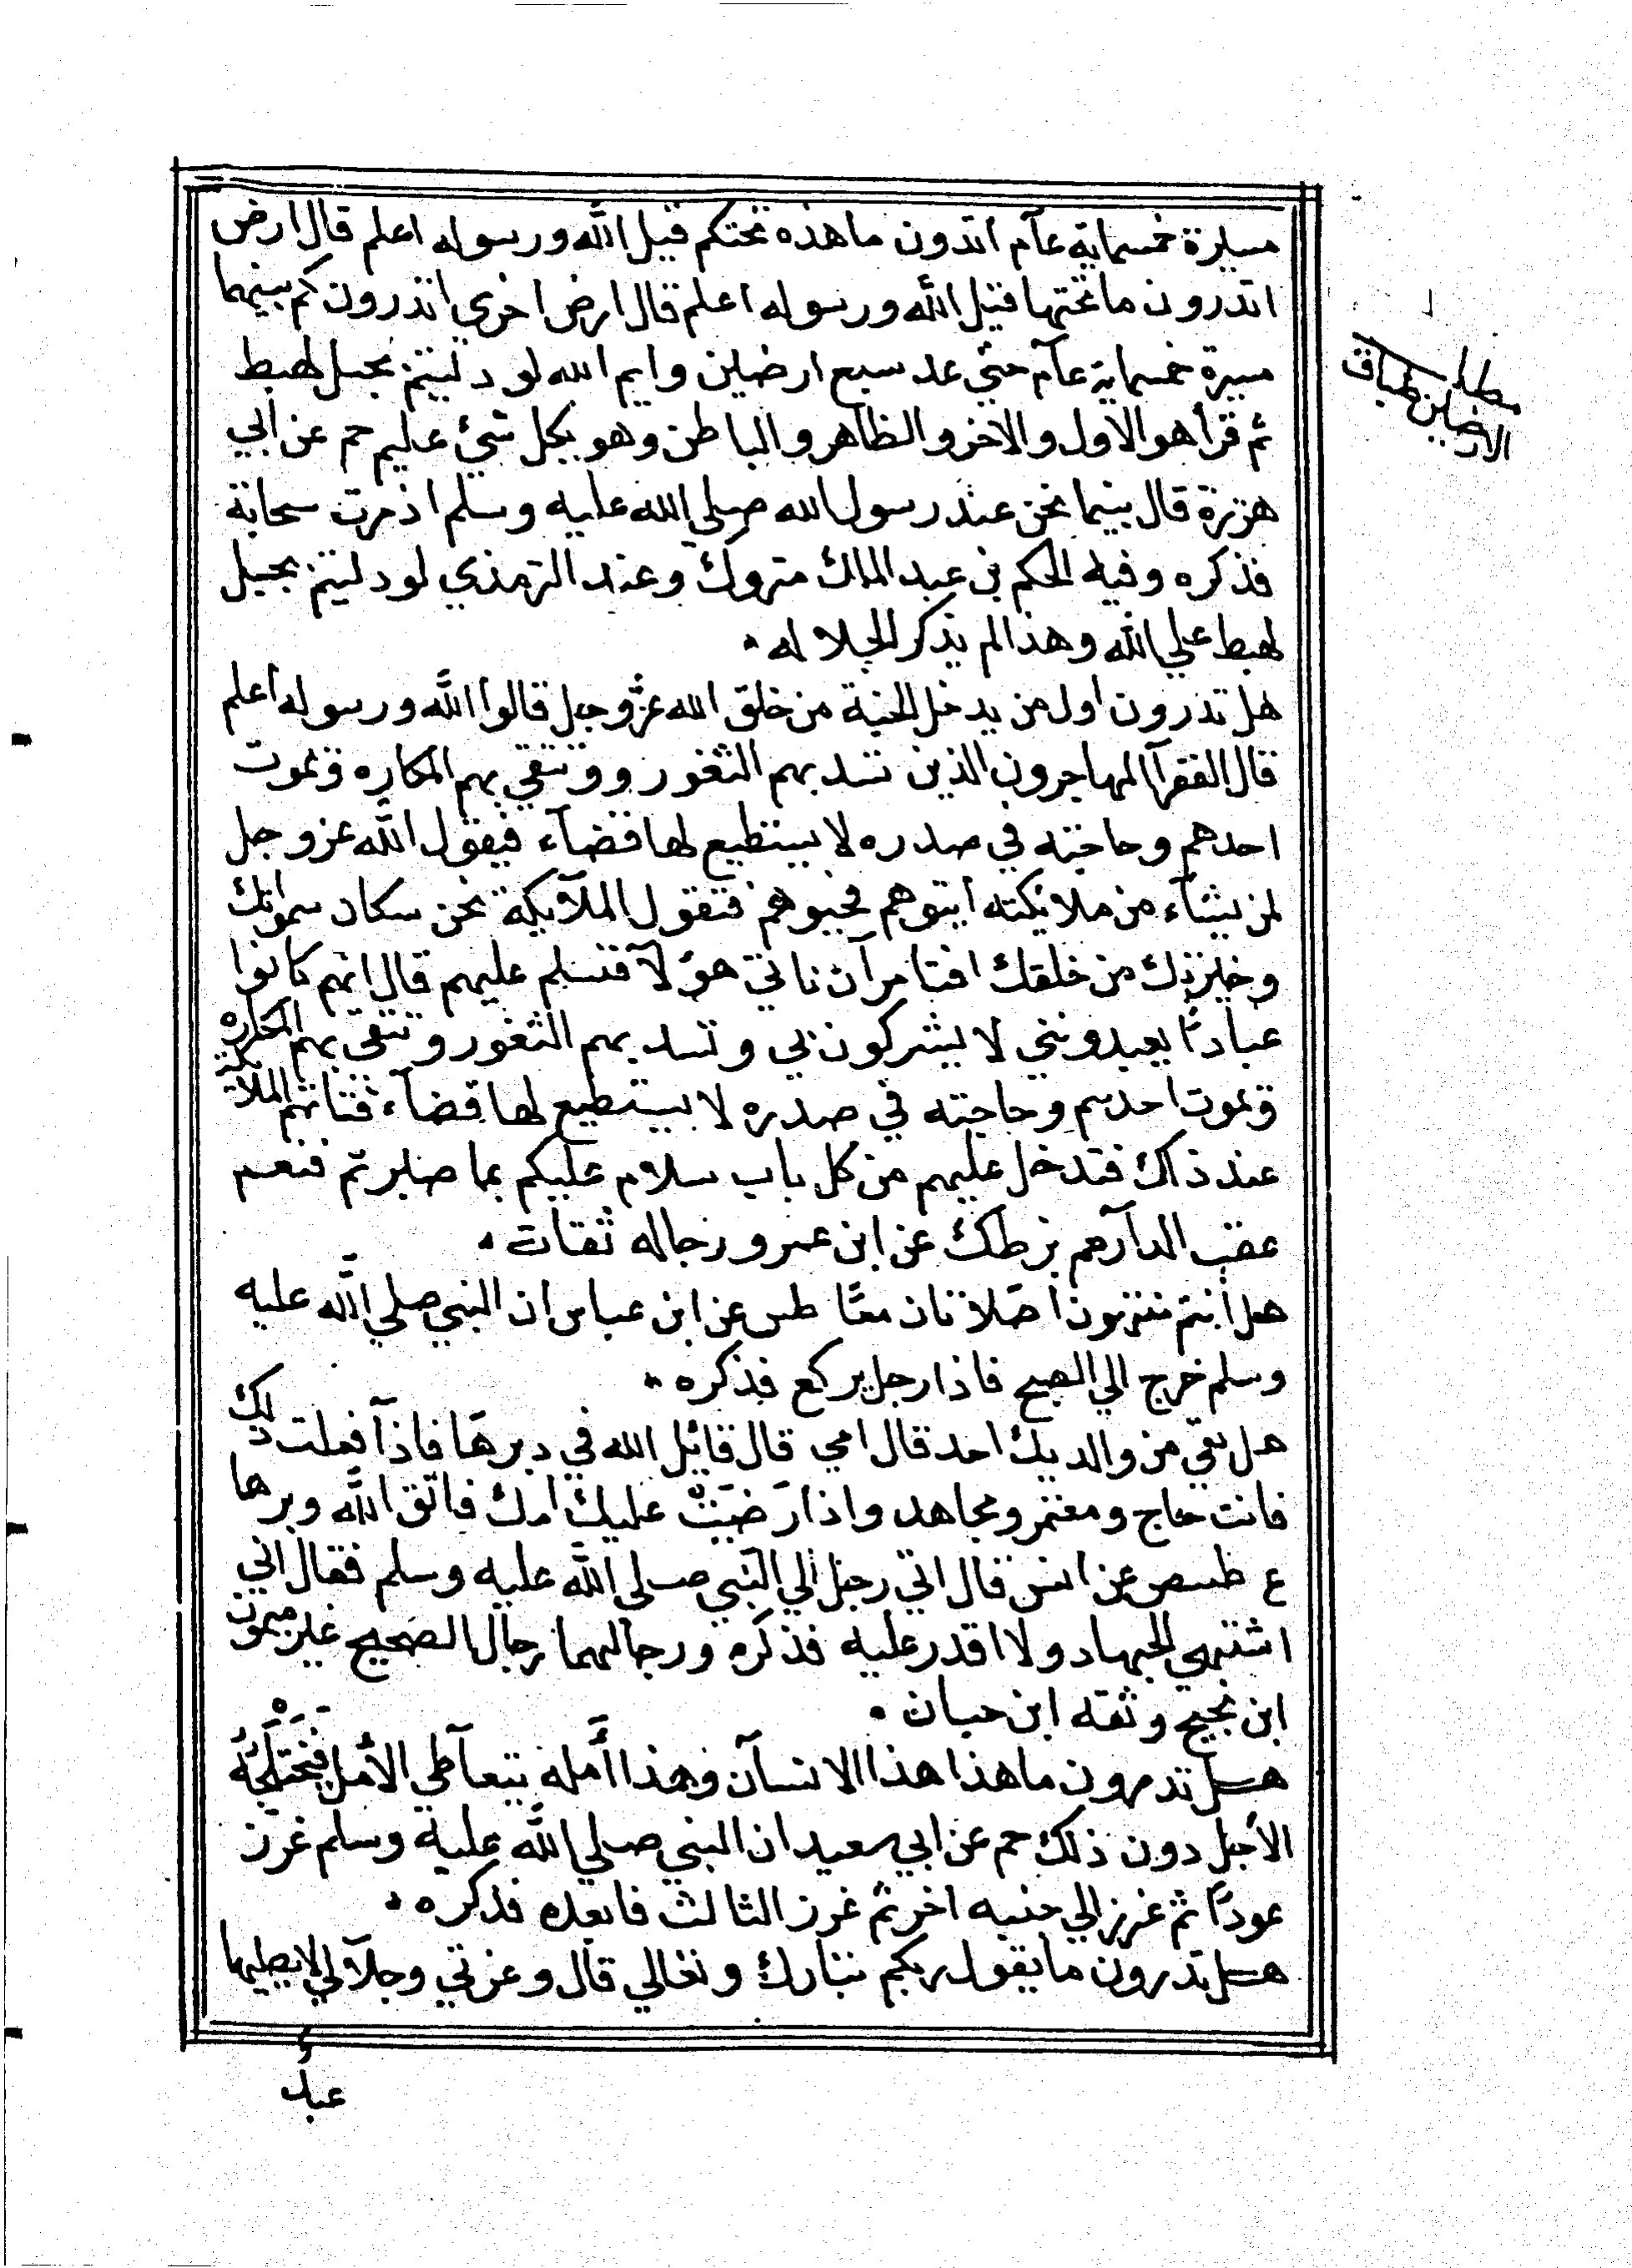 مسيرة خمسماية عآم اتدرون ما هذه تحتكم قيل الله ورسوله اعلم قال ارض
اتدرون ما تحتها قيل الله ورسوله اعلم قال ارض اخري اتدرون كم بينهما
مسيرة خمسماية عآم حتي عد سبع ارضين وايم الله لو دليتم بحبل لهبط
ثم قرأ هو الاول والاخر والظاهر والباطن وهو بكل شئ عليم حم عن ابي
هريرة قال بينما نحن عند رسول الله صلي الله عليه وسلم اذ مرت سحابة
فذكره وفيه الحكم بن عبد الملك متروك وعند الترمذي لو دليتم بحبل
لهبط علي الله وهذا لم يذكر الجلاله
هل تدرون اول من يدخل الجنة من خلق الله عز وجل قالوا الله ورسوله اعلم
قال الفقرآ المهاجرون الذين تسد بهم الثغور وتتقي بهم المكاره ويموت
احدهم وحاجته في صدره لا يستطيع لها قضآء فيقول الله عز وجل
لمن يشآء من ملائكته ايتوهم فحيوهم فتقول الملآيكة نحن سكان سمواتك
وخيرتك من خلقك افتامرآن ناتي هؤلآ فنسلم عليهم قال انهم كانوا
عبادًا يعبدونني لا يشركون بي وتسد بهم الثغور وتتقي بهم المكاره
ويموت احدهم وحاجته في صدره لا يستطيع لها قضآء فتاتهم الملائكة
عند ذاك فتدخل عليهم من كل باب سلام عليكم بما صبرتم فنعم
عقب الدآر حم بز طك عن ابن عمر ورجاله ثقات
هل أنتم منتهون أصلاتان معًا طس عن ابن عباس ان النبي صلي الله عليه
وسلم خرج الي الصبح فاذا رجل يركع فذكره
هل بقي من والديك احد قال امي قال قابل الله في برها فاذآ فعلت ذلك
فانت حاج ومعتمر ومجاهد واذا رضيت عليك امك فاتق الله وبرها
ع طسص عن انس قال اتي رجل الي النبي صلي الله عليه وسلم فقال اني
اشتهي الجهاد ولا اقدر عليه فذكره ورجالهما رجال الصحيح غير ميمون
ابن نجيح وثقه ابن حبان
هل تدرون ما هذا هذا الانسآن وهذا أمله يتعآطي الأمل فيختلجه
الأجل دون ذلك حم عن ابي سعيد ان النبي صلي الله عليه وسلم غرز
عودًا ثم غرز الي جنبه اخر ثم غرز الثالث فابعده فذكره
هل تدرون ما يقول ربكم تبارك وتعالي قال وعزتي وجلآلي لا يصليها
عبد
مطلب
الارضين طباق